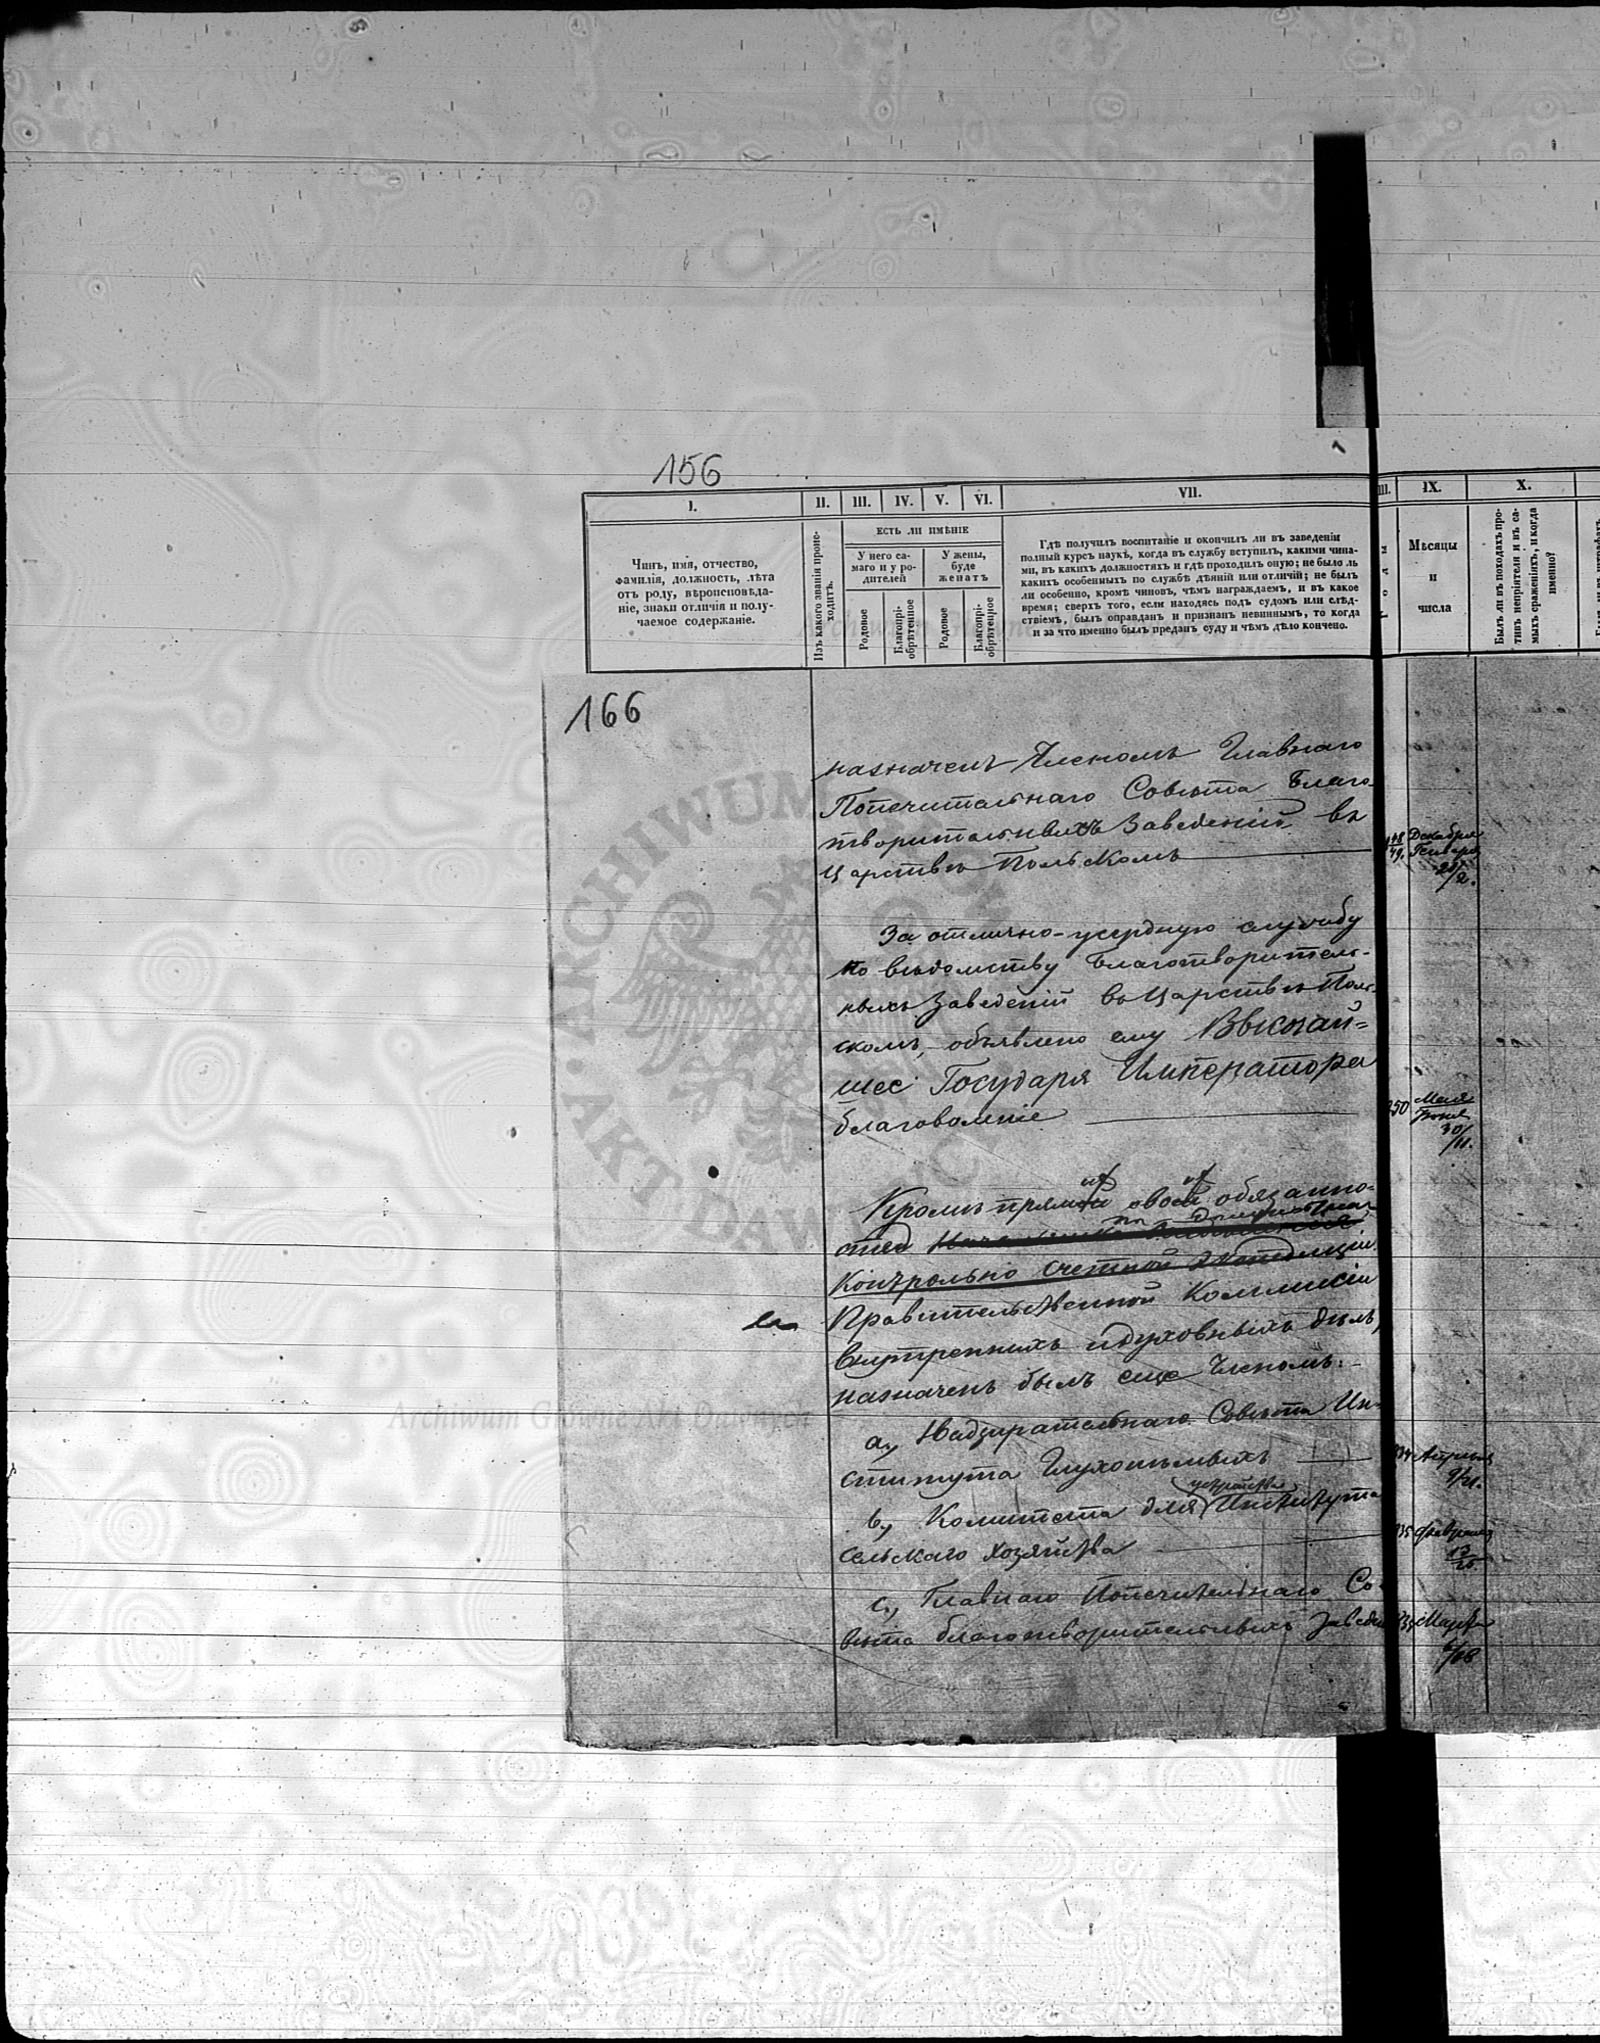 156
I.
II.
III.
IV.
V.
VI.
VII.
III.
IX.
X.
Чинъ, имя, отчество,
фамилія, должность, лѣта
отъ роду, вѣроисповѣда-
ніе, знаки отличія и полу-
чаемое содержаніе.
Изъ какого званія проис-
ходитъ.
ЕСТЬ ЛИ ИМѢНІЕ
У него са-
маго и у ро-
дителей
У жены,
буде
женатъ
Родовое
Благопрі-
обрѣтенное
Родовое
Благопрі-
обрѣтенное
Гдѣ получилъ воспитаніе и окончилъ ли въ заведеніи
полный курсъ наукъ, когда въ службу вступилъ, какими чина-
ми, въ какихъ должностяхъ и гдѣ проходилъ оную; не было ль
какихъ особенныхъ по службѣ дѣяній или отличій; не былъ
ли особенно, кромѣ чиновъ, чѣмъ награждаемъ, и въ какое
время; сверхъ того, если находясь подъ судомъ или слѣд-
ствіемъ, былъ оправданъ и признанъ невиннымъ, то когда
и за что именно былъ преданъ суду и чѣмъ дѣло кончено.
Годы
Мѣсяцы
и
числа
Былъ ли въ походахъ про-
тивъ непріятеля и въ са-
мыхъ сраженіяхъ, и когда
именно?
166
назначенъ Членомъ Главнаго
Попечительнаго Совѣта Благо-
творительныхъ Заведеній въ
Царствѣ Польскомъ
48
49.
Декабря
Генваря
2.
За отлично-усердную службу
по вѣдомству Благотворитель-
ныхъ Заведеній въ Царствѣ Поль-
скомъ, объявлено ему Высочай=
шее Государя Императора
благоволеніе
850
Мая
Іюня
30/
/11.
Кромѣ прямой своей обязанно-
стей
Контрольно Счетной Экспедиціи
Правительственной Коммисіи
внутреннихъ и духовныхъ дѣлъ,
назначенъ былъ еще Членомъ:
a., Надзирательнаго Совѣта Ин-
ститута Глухонѣмыхъ
34 Апрѣля
9/21.
b., Комитета для устройства Института
сельскаго хозяйства
35 Февраля
c., Главнаго Попечительнаго Со-
вѣта благотворительныхъ Заведе
35 Марта
6/18
ARCHIWUM
AKT DAWNYCH
Archiwum Główne Akt Dawnych